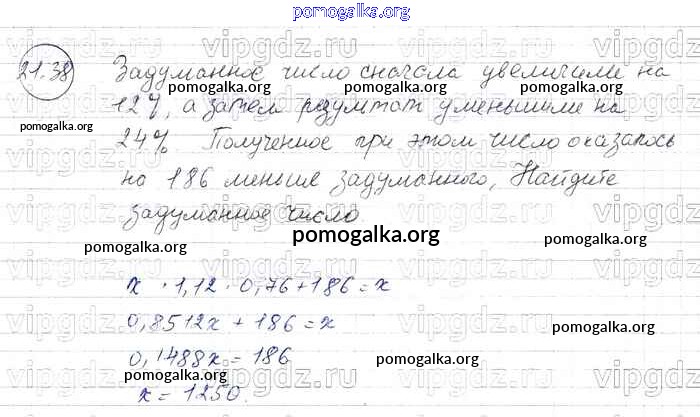 pomogalka.org
vipgdz.ru vipgdz.ru vipgdz.ru
21.38 Задуманное число сначала увеличили на
pomogalka.org pomogalka.org pomogalka.org
12%, а затем результат уменьшили на
pomogalka.org
24%. Полученное при этом число оказалось
на 186 меньше задуманного, Найдите
задуманное число
pomogalka.org pomogalka.org pomogalka.org
x · 1,12 · 0,76 + 186 = x
0,8512x + 186 = x
pomogalka.org
0,1488x = 186
pomogalka.org pomogalka.org
x = 1250.